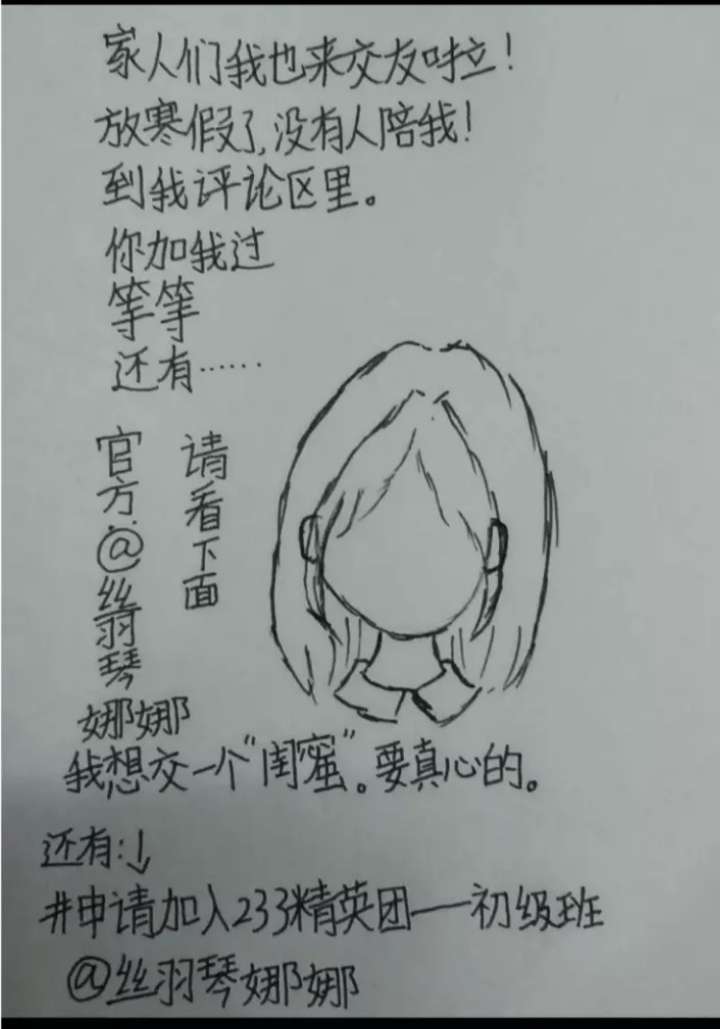 家人们我也来交友啦！
放寒假了，没有人陪我！
到我评论区里。
你加我过
等等
还有……
请看下面
官方：@丝羽琴
娜娜
我想交一个“闺蜜”。要真心的。
还有：↓
#申请加入233精英团——初级班
@丝羽琴娜娜